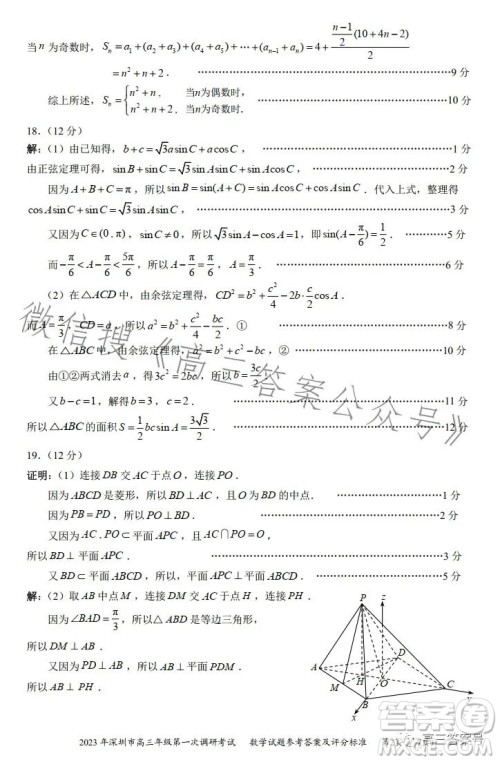 当 n 为奇数时， Sₙ = a₁ + (a₂ + a₃) + (a₄ + a₅) + ⋯ + (aₙ₋₁ + aₙ) = 4 + ((n−1)/2 (10 + 4n − 2))/2
= n² + n + 2 . ……9 分
综上所述， Sₙ = { n² + n, 当n为偶数时, n² + n + 2, 当n为奇数时. ……10 分
18.（12 分）
解：（1）由已知得， b + c = √3 a sin C + a cos C ， ……1 分
由正弦定理可得， sin B + sin C = √3 sin A sin C + sin A cos C . ……2 分
因为 A + B + C = π ，所以 sin B = sin(A + C) = sin A cos C + cos A sin C . 代入上式，整理得
cos A sin C + sin C = √3 sin A sin C ， ……3 分
又因为 C ∈ (0, π) ， sin C ≠ 0 ，所以 √3 sin A − cos A = 1 ，即 sin(A − π/6) = 1/2 . ……5 分
而 −π/6 < A − π/6 < 5π/6 ，所以 A − π/6 = π/6 ， A = π/3 . ……6 分
（2）在 △ACD 中，由余弦定理得， CD² = b² + c²/4 − 2b · c/2 cos A .
而 A = π/3 ， CD = a ．所以 a² = b² + c²/4 − bc/2 . ① ……8 分
在 △ABC 中，由余弦定理得， a² = b² + c² − bc ，② ……10 分
由①②两式消去 a ，得 3c² = 2bc ，所以 b = 3c/2 ，
又 b − c = 1 ，解得 b = 3 ， c = 2 . ……11 分
所以 △ABC 的面积 S = 1/2 bc sin A = 3√3/2 . ……12 分
19.（12 分）
证明：（1）连接 DB 交 AC 于点 O ，连接 PO .
因为 ABCD 是菱形，所以 BD ⊥ AC ，且 O 为 BD 的中点. ……1 分
因为 PB = PD ，所以 PO ⊥ BD . ……2 分
又因为 AC , PO ⊂ 平面 APC ，且 AC ∩ PO = O ，
所以 BD ⊥ 平面 APC . ……3 分
又 BD ⊂ 平面 ABCD ，所以平面 APC ⊥ 平面 ABCD . ……5 分
解：（2）取 AB 中点 M ，连接 DM 交 AC 于点 H ，连接 PH .
因为 ∠BAD = π/3 ，所以 △ABD 是等边三角形，
所以 DM ⊥ AB .
又因为 PD ⊥ AB ，所以 AB ⊥ 平面 PDM .
所以 AB ⊥ PH .
P
z
A
D
M
H
O
B
C
微信搜《高三答案公众号》
2023 年深圳市高三年级第一次调研考试 数学试题参考答案及评分标准
高三答案号